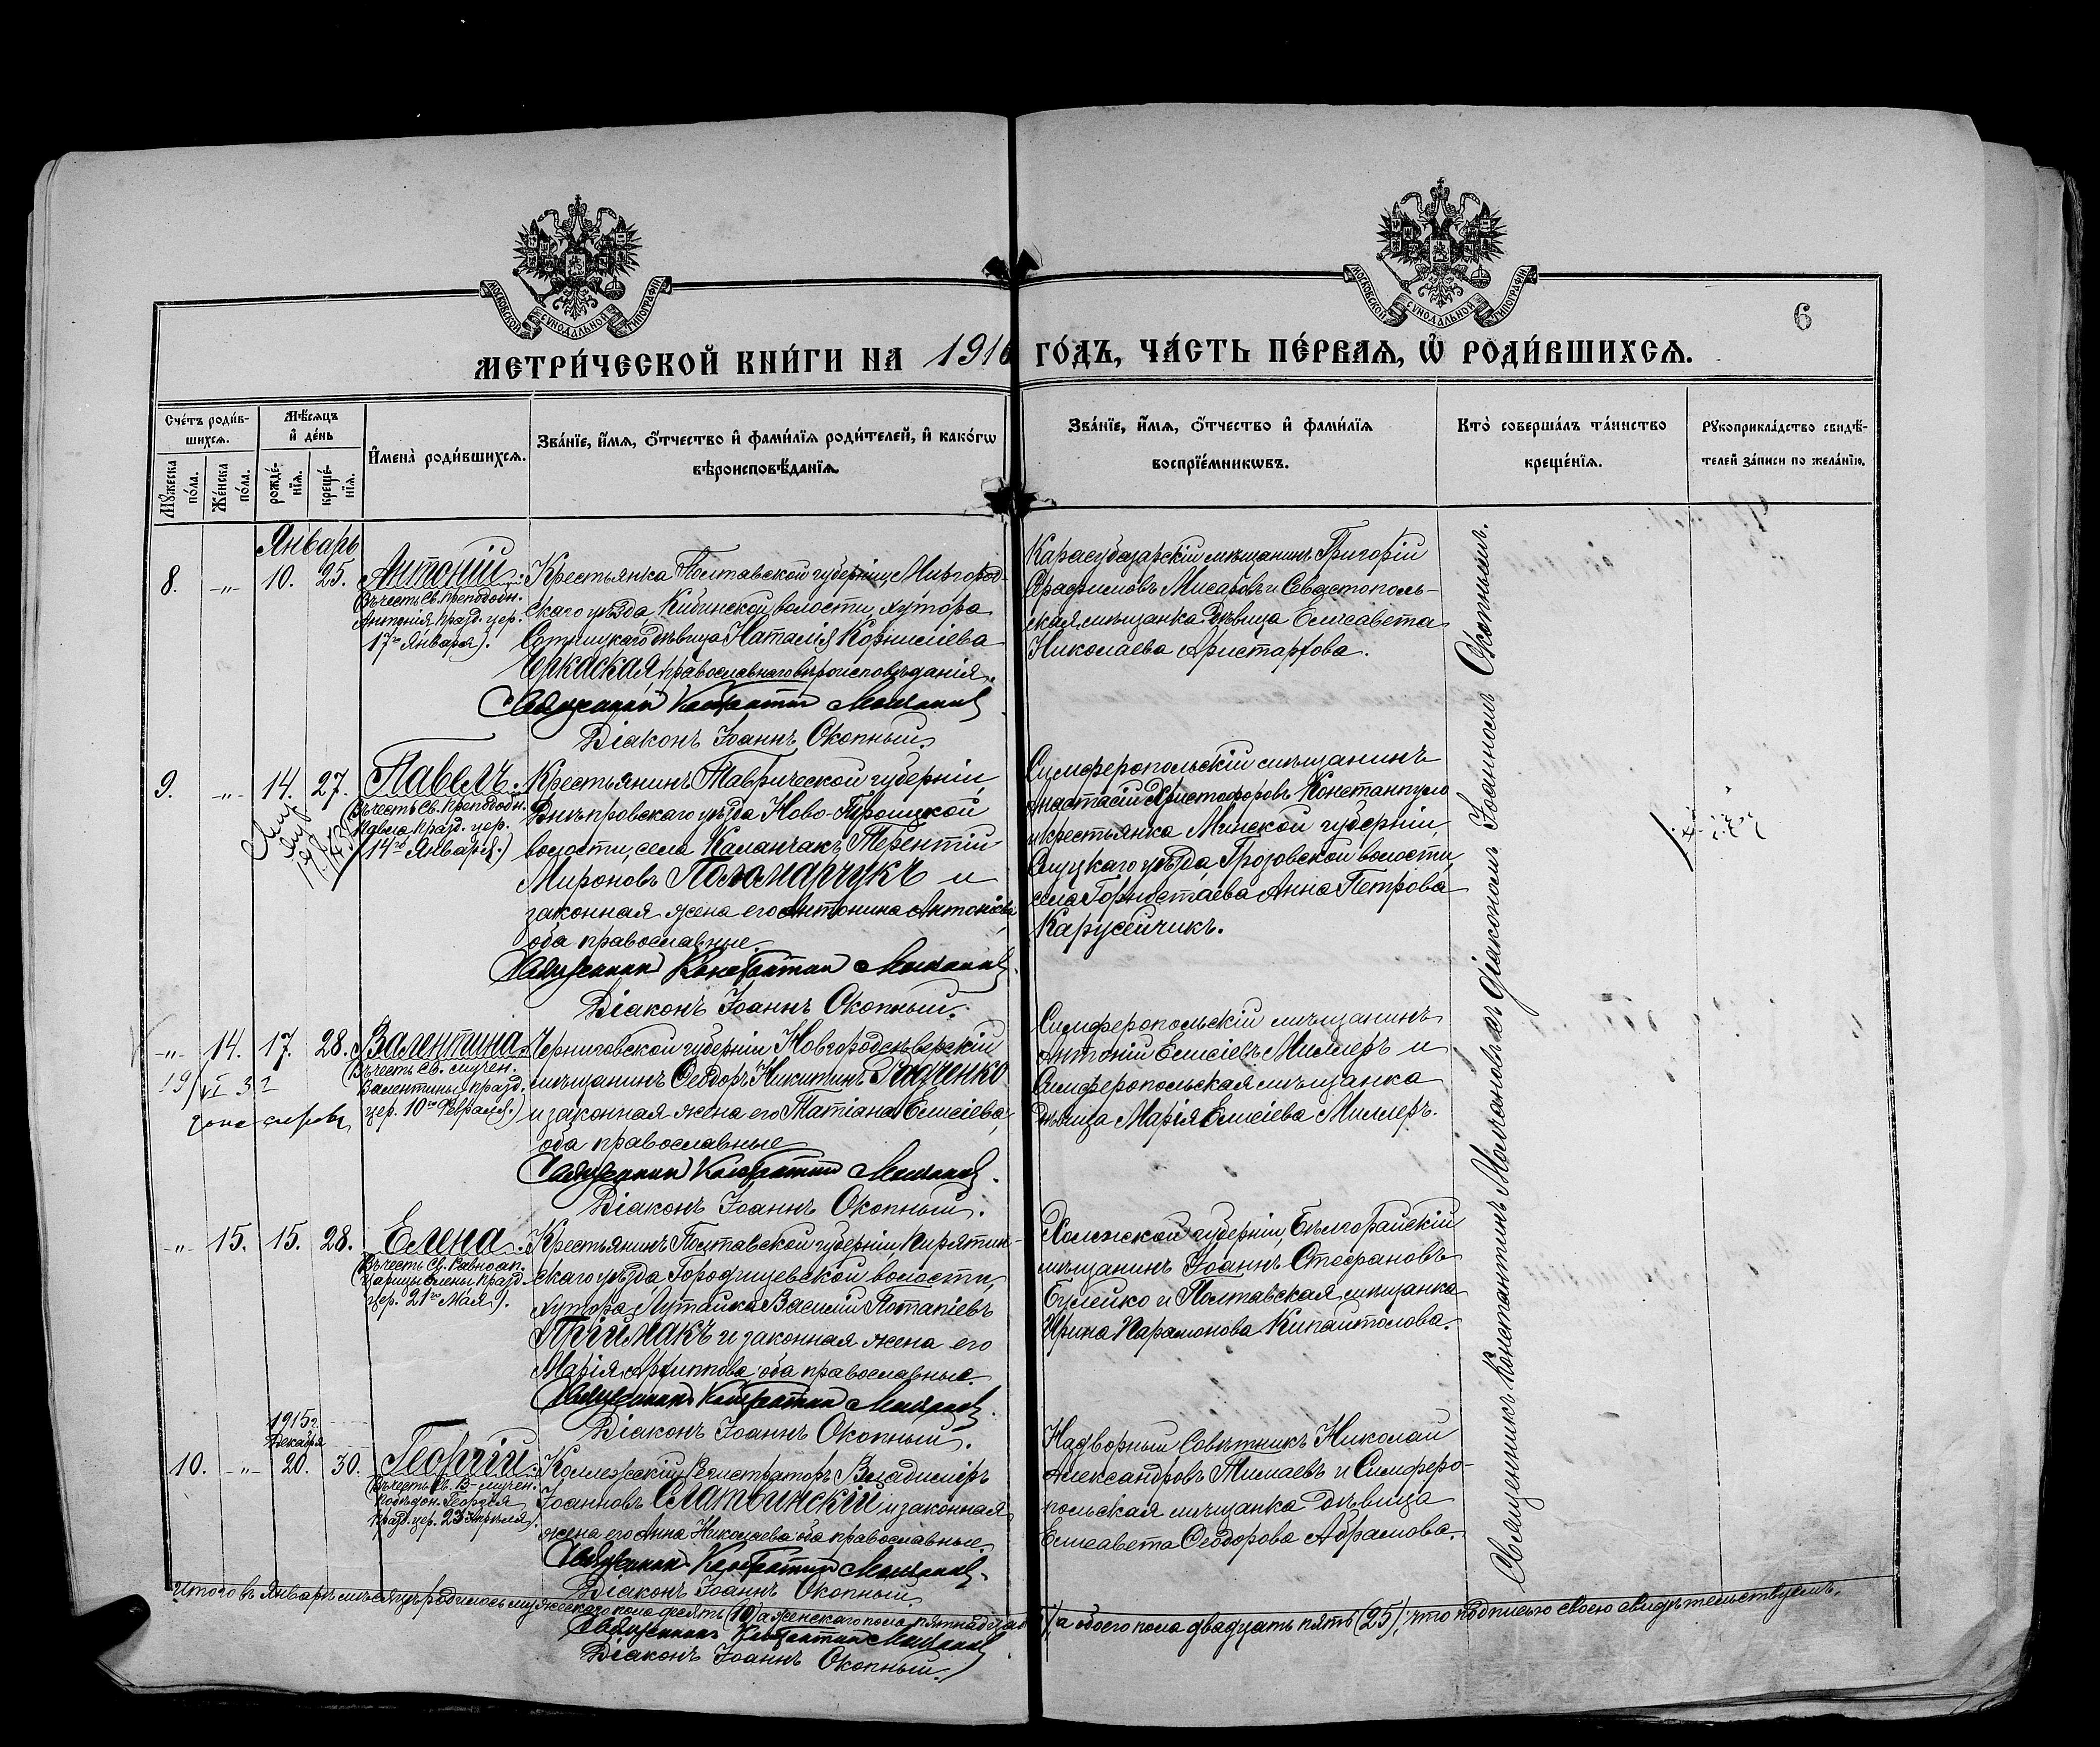 МОСКОВСКОЙ СѴНОДАЛЬНОЙ ТИПОГРАФІИ
МОСКОВСКОЙ СѴНОДАЛЬНОЙ ТИПОГРАФІИ
6
МЕТРИ́ЧЕСКОЙ КНИ́ГИ НА 1916 ГО́ДЪ, ЧА́СТЬ ПЕ́РВАѦ, Ѡ҆ РОДИ́ВШИХСѦ.
Сче́тъ роди́в-
шихсѧ.
Мꙋ́жеска
по́ла.
Же́нска
по́ла.
Мѣ́сѧцъ
и҆ де́нь
рожде́-
нїѧ.
креще́-
нїѧ.
И҆мена̀ роди́вшихсѧ.
Зва́нїе, и҆́мѧ, ѻ҆́тчество и҆ фами́лїѧ роди́телей, и҆ како́гѡ
вѣроисповѣ́данїѧ.
Зва́нїе, и҆́мѧ, ѻ҆́тчество и҆ фами́лїѧ
воспрїе́мникѡвъ.
Кто̀ соверша́лъ та́инство
креще́нїѧ.
Рꙋкоприкла́дство свидѣ́-
телей за́писи по жела́нїю.
Январь
8. -„- 10. 25.
Антоній
(Въ честь Св. преподобн.
Антонія празд. цер.
17го Января).
Крестьянка Полтавской губерніи, Миргород-
скаго уѣзда Кибинской волости, хутора
дѣвица Наталія Корнилиева
Черкаская, православнаго вѣроисповѣданія.
Священникъ Константинъ Молчановъ
Діаконъ Іоаннъ Окопный.
Карасубазарскій мѣщанинъ Григорій
Мисаровъ и Севастополь-
ская мѣщанка дѣвица Елисавета
Николаева Аристархова.
9. -„- 14. 27.
Павелъ
(Въ честь Св. преподобн.
Павла празд. цер.
14го Января.)
Крестьянинъ Таврической губерніи,
Днѣпровскаго уѣзда Ново-Троицкой
волости, села Каланчакъ Терентій
Мироновъ Поломарчукъ и
законная жена его Антонина Антоніева
оба православные.
Священникъ Константинъ Молчановъ.
Діаконъ Іоаннъ Окопный.
Симферопольскій мѣщанинъ
Анастасій Христофоровъ Константуло
и крестьянка Минской губерніи,
Слуцкаго уѣзда, Грозовской волости,
села Горностаева Анна Петрова
Карусейчикъ.
-„- 14. 17. 28.
Валентина
(Въ честь Св. мучен.
Валентины празд.
цер. 10го Февраля.)
Черниговской губерніи Новгородсѣверскій
мѣщанинъ Ѳеодоръ Никитинъ Радченко
и законная жена его Татіана Елисіева,
оба православные
Священникъ Константинъ Молчановъ.
Діаконъ Іоаннъ Окопный.
Симферопольскій мѣщанинъ
Антоній Елисіевъ Миллеръ и
Симферопольская мѣщанка
дѣвица Марія Елисіева Миллеръ.
-„- 15. 15. 28.
Елена
(Въ честь Св. Равноап.
Царицы Елены празд.
цер. 21го Мая).
Крестьянинъ Полтавской губерніи, Пирятин-
скаго уѣзда, Городищевской волости,
хутора Лутайка Василій Потапіевъ
Приймакъ и законная жена его
Марія Архиппова, оба православные.
Священникъ Константинъ Молчановъ.
Діаконъ Іоаннъ Окопный.
Холмской губерніи, Бѣлгорайскій
мѣщанинъ Іоаннъ Стефановъ
Булейко и Полтавская мѣщанка
Ирина Парамонова
1915 г.
Декабря
10. -„- 20. 30.
Георгій
(Въ честь Св. В-мучен.
Побѣдон. Георгія
празд. цер. 23 Апрѣля).
Коллежскій Регистраторъ Владиміръ
Іоанновъ Слатвинскій и законная
жена его Анна Николаева оба православные.
Священникъ Константинъ Молчановъ.
Діаконъ Іоаннъ Окопный.
Надворный Совѣтникъ Николай
Александровъ Тимаевъ и Симферо-
польская мѣщанка дѣвица
Елисавета Ѳеодорова Абрамова.
Священникъ Константинъ Молчановъ съ діакономъ Іоанномъ Окопнымъ.
Итого въ Январѣ мѣсяцѣ родилось мужескаго пола десять (10) а женскаго пола пятнадцать), а обоего пола двадцать пять (25); что подписью своею свидѣтельствуемъ.
Священникъ Константинъ Молчановъ
Діаконъ Іоаннъ Окопный.